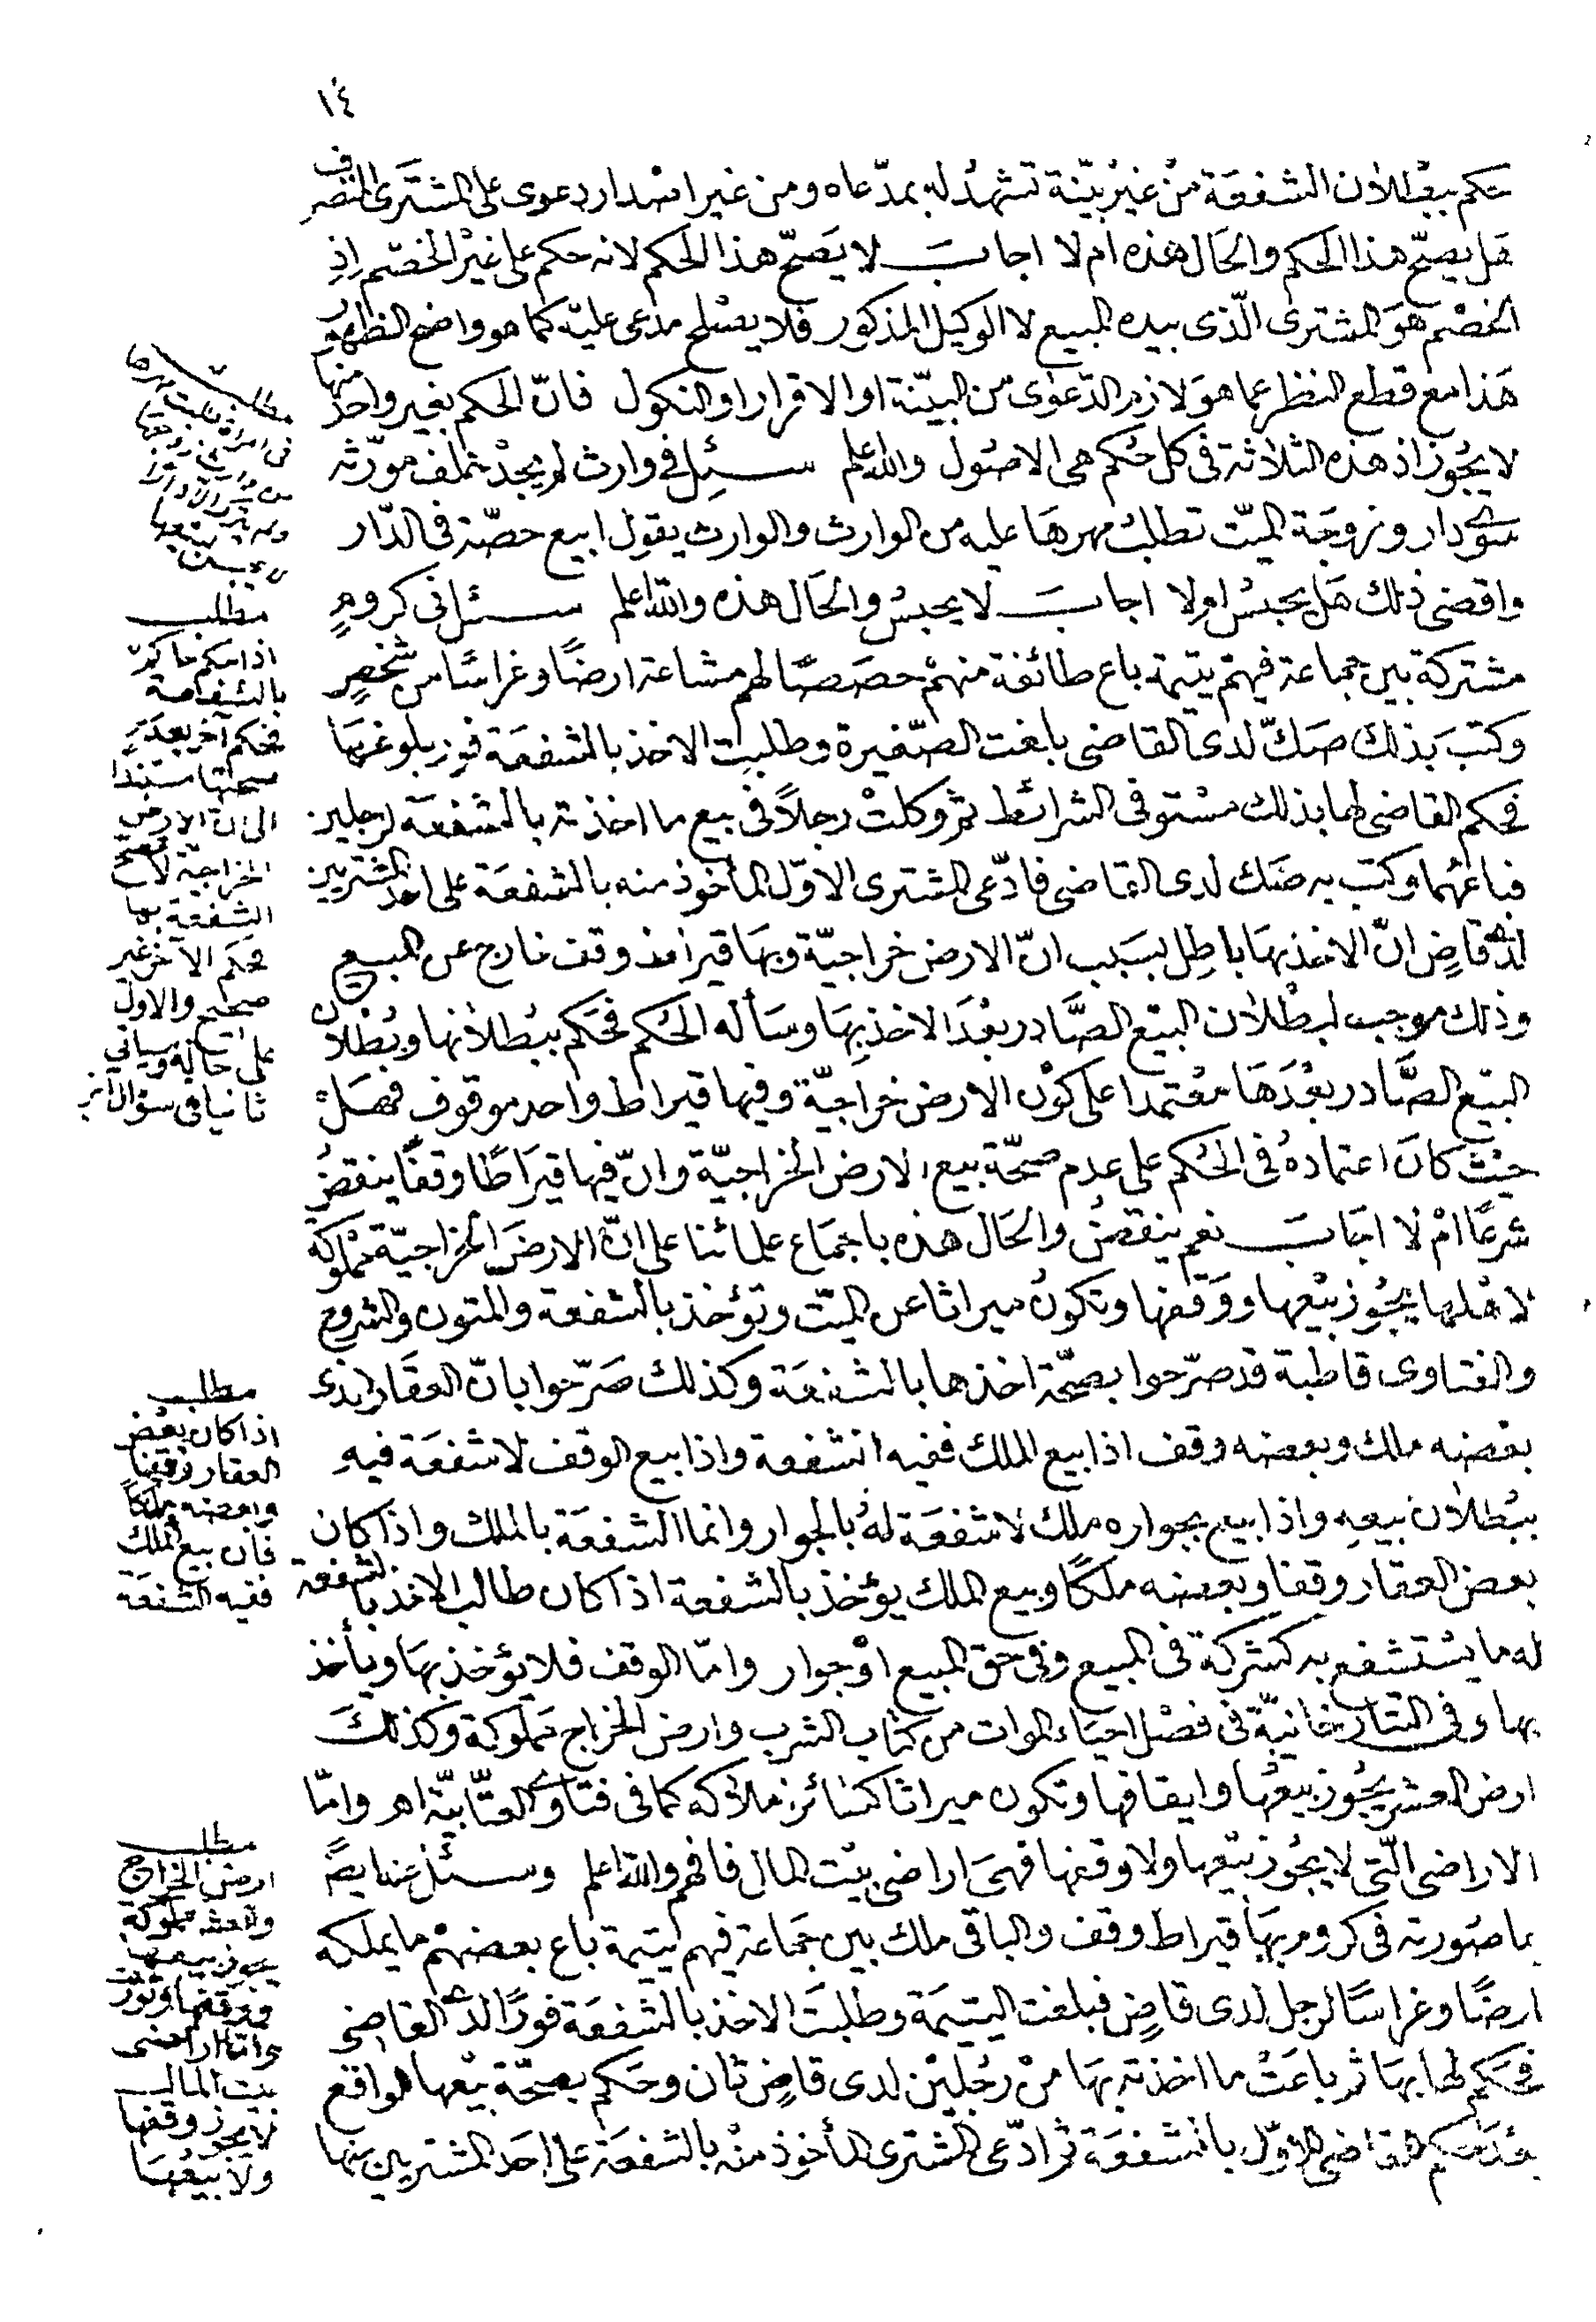 ١٤
حكم ببطلان الشفعة من غير بيّنة تشهد له بمدّعاه ومن غير اصدار دعوى على المشترى المتصرف
هل يصحّ هذا الحكم والحال هذه ام لا اجاب لا يصحّ هذا الحكم لانه حكم على غير الخصم اذ
الخصم هو المشترى الّذى بيده المبيع لا الوكيل المذكور فلا يصلح مدعى عليه كما هو واضح الظهور
هذا مع قطع النظر عما هو لازم الدّعوى من البيّنة او الاقرار او النكول فانّ الحكم بغير واحد منها
لا يجوز اذ هذه الثلاثة فى كل حكم هى الاصول والله اعلم سئل فى وارث لم يجد بمخلف مورّثه
سوى دار وزوجة الميّت تطلب مهرها عليه من الوارث والوارث يقول ابيع حصّته فى الدّار
واقضى ذلك هل يحبس اولا اجاب لا يحبس والحال هذه والله اعلم سئل فى كروم
مشتركة بين جماعة فيهم يتيمة باع طائفة منهم حصصًا لهم مشاعة ارضًا وغراسًا من شخص
وكتب بذلك صكّ لدى القاضى بلغت الصّغيرة وطلبت الاخذ بالشفعة فور بلوغها
فحكم القاضى لها بذلك مستوفى الشرائط ثم وكلت رجلاً فى بيع ما اخذته بالشفعة لرجلين
فباعهما وكتب به صك لدى القاضى فادّعى المشترى الاوّل المأخوذ منه بالشفعة على احد المشتريين
لدى قاض انّ الاخذ بها باطل بسبب انّ الارض خراجيّة وبها قيراط وقف خارج عن البيع
وذلك موجب لبطلان البيع الصّادر بعد الاخذ بها وسأله الحكم فحكم ببطلانها وبطلان
البيع الصّادر بعدها معتمدا على كون الارض خراجيّة وفيها قيراط واحد موقوف فهل
حيث كان اعتماده فى الحكم على عدم صحّة بيع الارض الخراجيّة وانّ فيها قيراطًا وقفًا ينقض
شرعًا ام لا اجاب نعم ينقض والحال هذه باجماع علمائنا على انّ الارض الخراجيّة مملوكة
لاهلها يجوز بيعها ووقفها وتكون ميراثا عن الميّت وتؤخذ بالشفعة والمتون والشروح
والفتاوى قاطبة قد صرّحوا بصحّة اخذها بالشفعة وكذلك صرّحوا بانّ العقار الذى
بعضه ملك وبعضه وقف اذا بيع الملك ففيه الشفعة واذا بيع الوقف لا شفعة فيه
ببطلان بيعه واذا بيع بجواره ملك لا شفعة له بالجوار وانما الشفعة بالملك واذا كان
بعض العقار وقفا وبعضه ملكًا وبيع الملك يؤخذ بالشفعة اذا كان طالب الاخذ بالشفعة
له ما يستشفع به كشركة فى المبيع وفى حق المبيع او جوار وامّا الوقف فلا يؤخذ بها ويأخذ
بها وفى التتارخانيّة فى فصل احياء الموات من كتاب الشرب وارض الخراج مملوكة وكذلك
ارض العشر يجوز بيعها وايقافها وتكون ميراثا كسائر املاكه كما فى فتاوى العتّابيّة اهـ وامّا
الاراضى الّتى لا يجوز بيعها ولا وقفها فهى اراضى بيت المال فافهم والله اعلم وسئل عنها ايضًا
بما صورته فى كروم بها قيراط وقف والباقى ملك بين جماعة فيهم يتيمة باع بعضهم ما يملكه
ارضًا وغراسًا لرجل لدى قاض فبلغت اليتيمة وطلبت الاخذ بالشفعة فورًا لدى القاضى
فحكم لها بها ثم باعت ما اخذته بها من رجلين لدى قاض ثان وحكم بصحّة بيعها الواقع
بعد حكم القاضى الاوّل بالشفعة ثم ادّعى المشترى المأخوذ منه بالشفعة على احد المشتريين منها
مطلب
مطلب
اذا حكم حاكم
بالشفعة
فحكم آخر بعدم
صحتها مستندا
الى انّ الارض
الخراجية لا تصح
الشفعة بها
فحكم الآخر غير
صحيح والاول
على حاله وسيأتي
ثانيا فى سؤال آخر
مطلب
اذا كان بعض
العقار وقفا
وبعضه ملكًا
فان بيع الملك
ففيه الشفعة
مطلب
ارض الخراج
والعشر مملوكة
يجوز بيعها
ووقفها وتورث
وامّا اراضى
بيت المال
لا يجوز وقفها
ولا بيعها